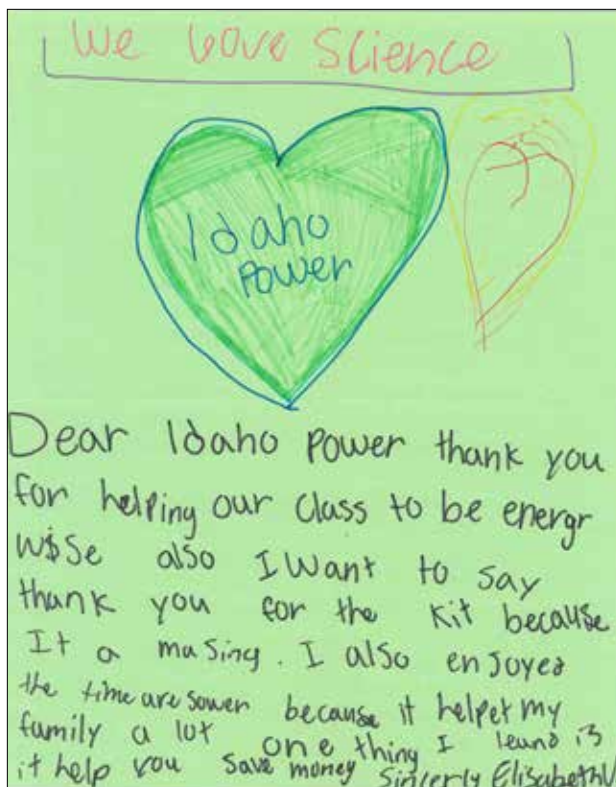 We Love Science
Idaho
Power
Dear Idaho power thank you
for helping our class to be energr
w$Se also I Want to say
thank you for the Kit because
It a musing. I also enjoyed
the time are sower because it helpet my
family a lot one thing I leund is
it help you save money Sincerly Elisabeth V